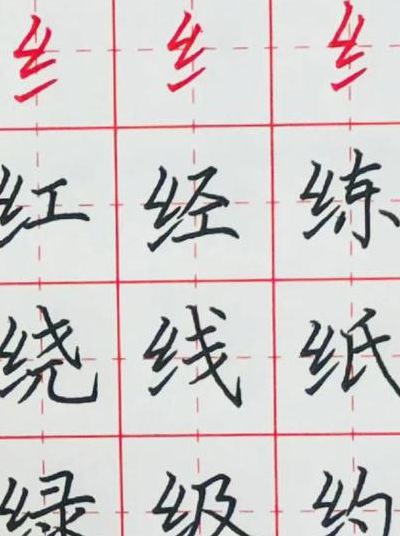 纟 纟 纟
红 经 练
绕 线 纸
绿 级 约